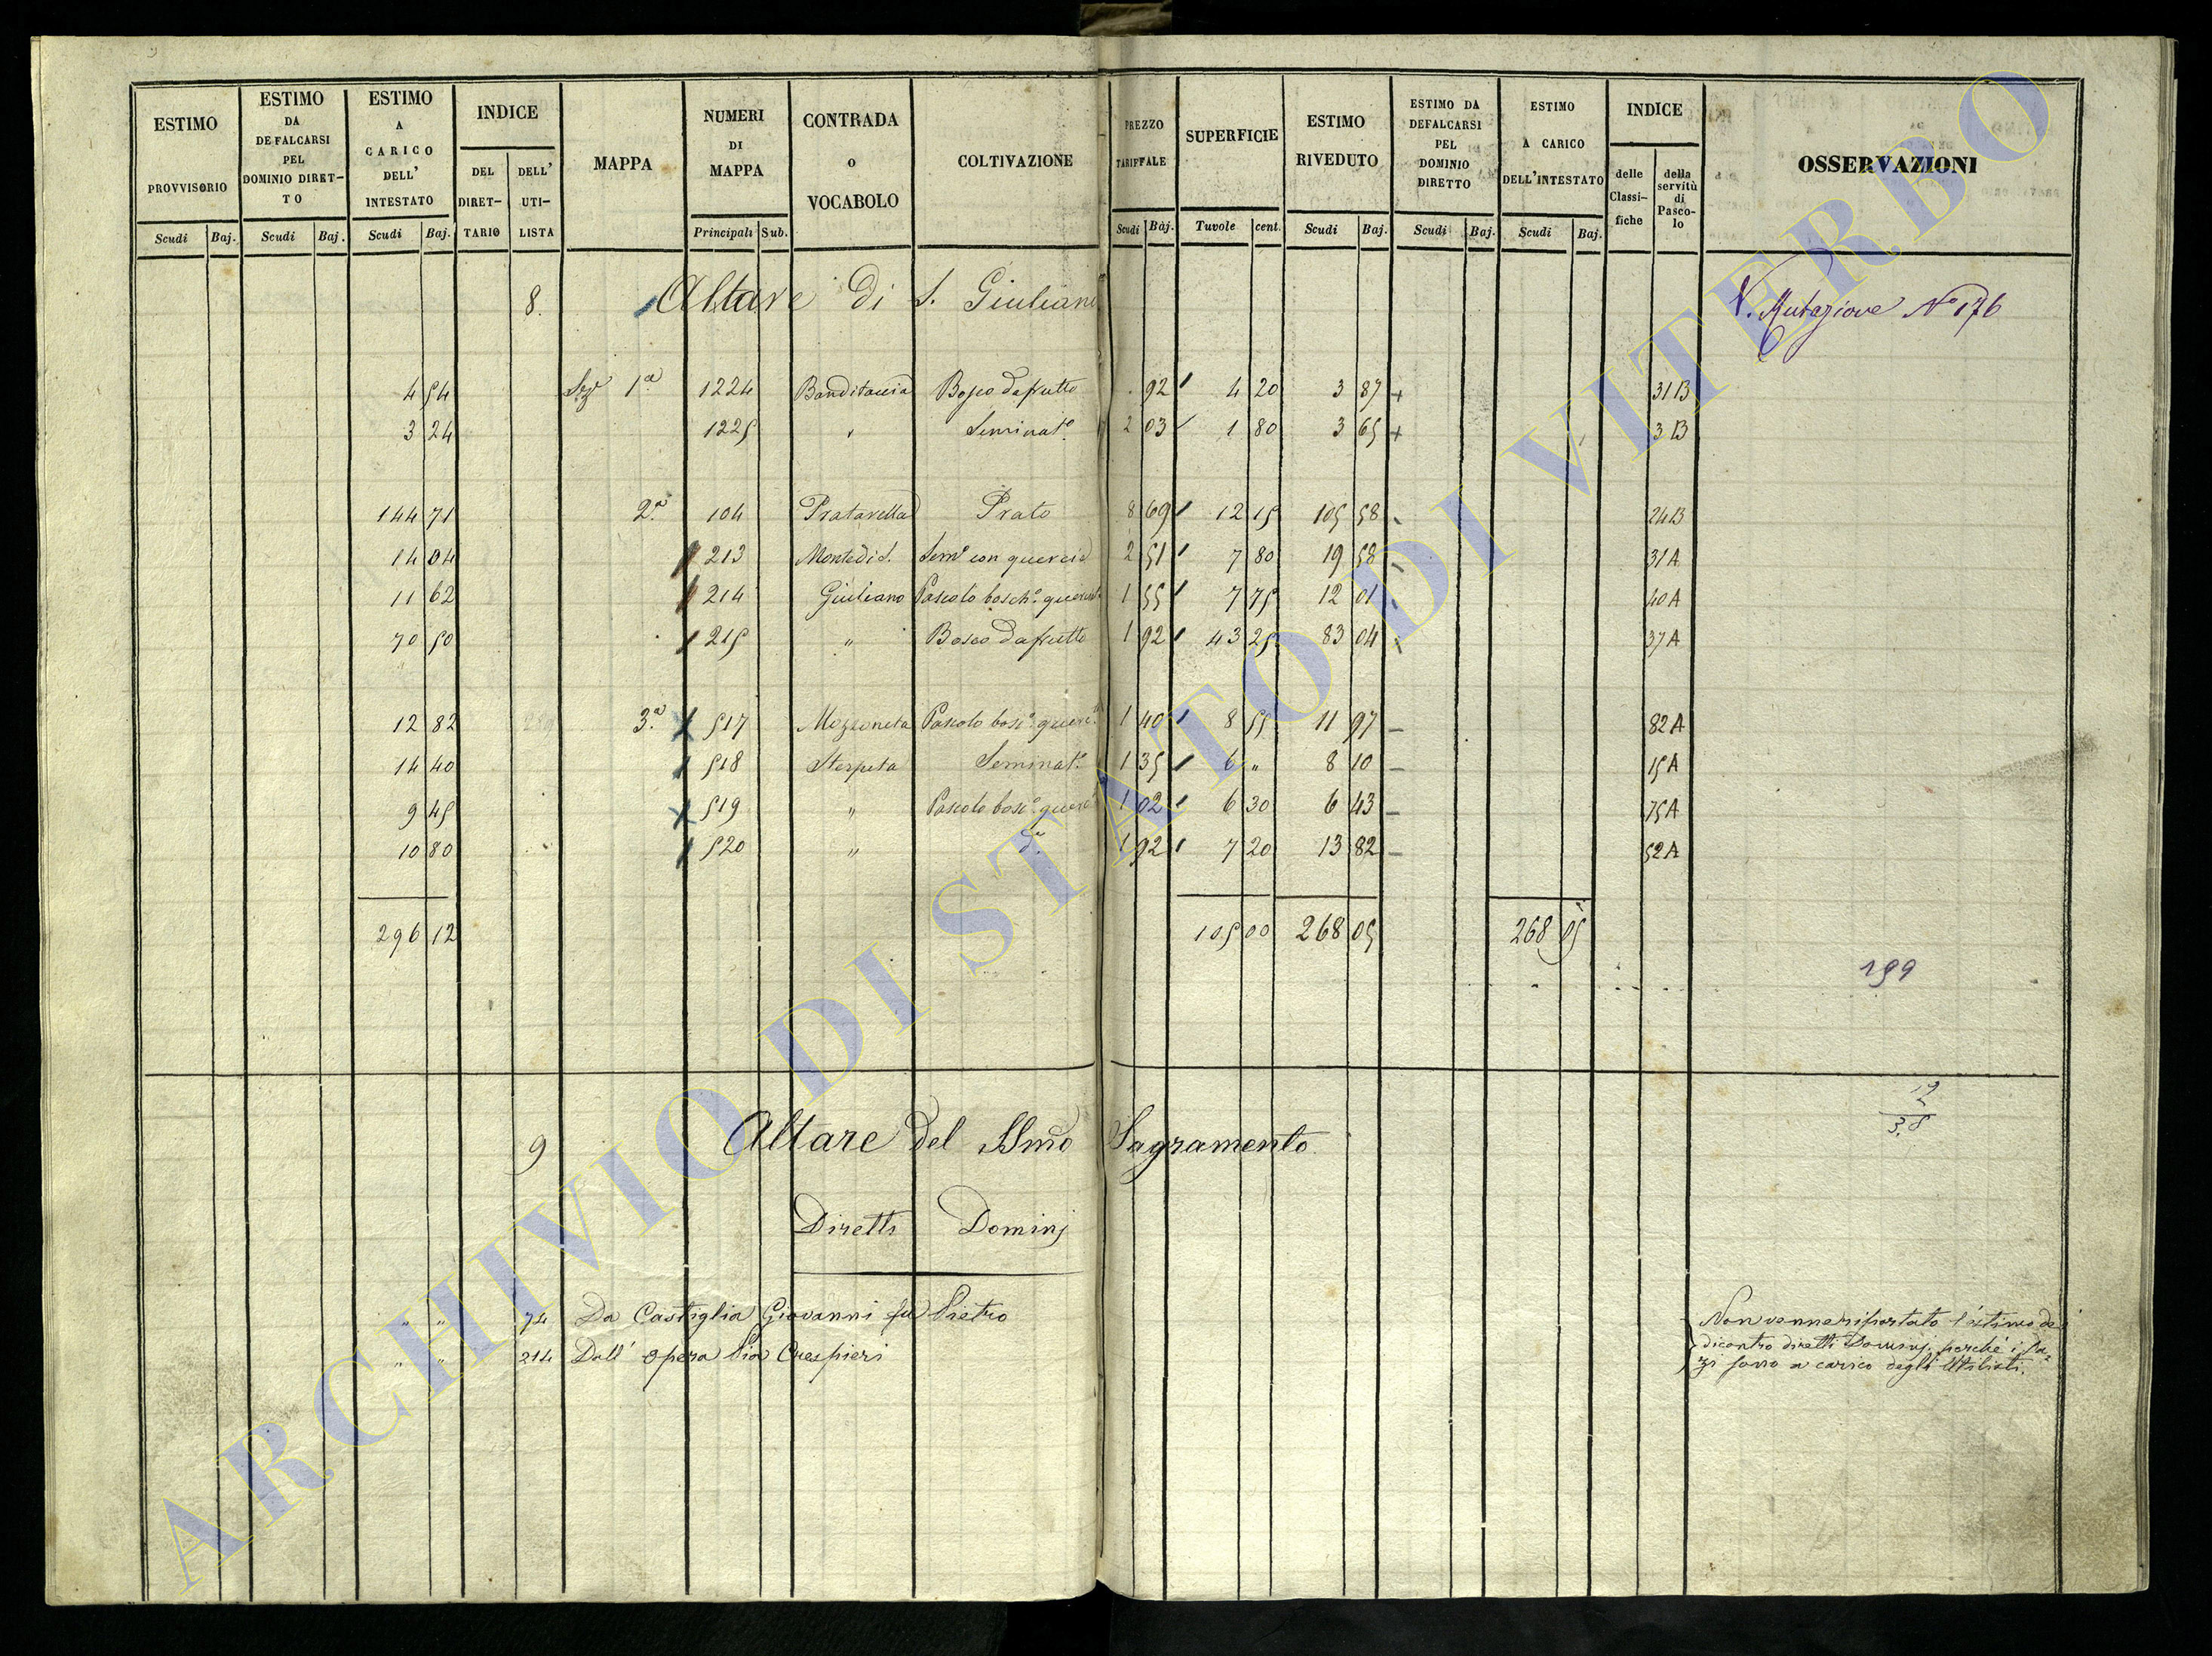 ESTIMO PROVVISORIO Scudi Baj.
ESTIMO DA DEFALCARSI PEL DOMINIO DIRET-TO Scudi Baj.
ESTIMO A CARICO DELL' INTESTATO Scudi Baj.
INDICE DEL DIRET-TARIO DELL' UTI-LISTA
MAPPA
NUMERI DI MAPPA Principali Sub.
CONTRADA o VOCABOLO
COLTIVAZIONE
PREZZO TARIFFALE Scudi Baj.
SUPERFICIE Tavole cent.
ESTIMO RIVEDUTO Scudi Baj.
ESTIMO DA DEFALCARSI PEL DOMINIO DIRETTO Scudi Baj.
ESTIMO A CARICO DELL'INTESTATO Scudi Baj.
INDICE delle Classi-fiche della servitù di Pasco-lo
OSSERVAZIONI
8. Altare di S. Giuliano V. Mutazione N° 176
4 54 Sez.e 1a 1224 Banditaccia Bosco da frutto . 92 4 20 3 87 + 31 B
3 24 1225 " Seminat.o 2 03 1 80 3 65 + 3 B
144 71 2.a 104 Pratarella Prato 8 69 12 15 105 58 24 B
14 04 213 Monte di S. Sem.o con quercie 2 51 7 80 19 58 31 A
11 62 214 Giuliano Pascolo bosch.o 1 55 7 75 12 01 40 A
70 50 215 " Bosco da frutto 1 92 43 25 83 04 37 A
12 82 3.a 517 Mozzoneta Pascolo bosc.o 1 40 8 55 11 97 — 82 A
14 40 518 Sterpeta Seminat.o 1 35 6 " 8 10 — 15 A
9 45 519 " Pascolo bosc.o 1 02 6 30 6 43 — 75 A
10 80 520 " d.o 1 92 7 20 13 82 — 52 A
296 12 105 00 268 05 268 05
199
19
2
3.8
9 Altare del SSmo Sagramento
Diretti Dominj
" " 74 Da Castiglia Giovanni fu Pietro
" " 214 Dall' Opera Pia Crespieri
Non venne riportato l'estimo de
dicontro diretti Dominj. perché i Da-
zi sono a carico degli Utilisti.
ARCHIVIO DI STATO DI VITERBO